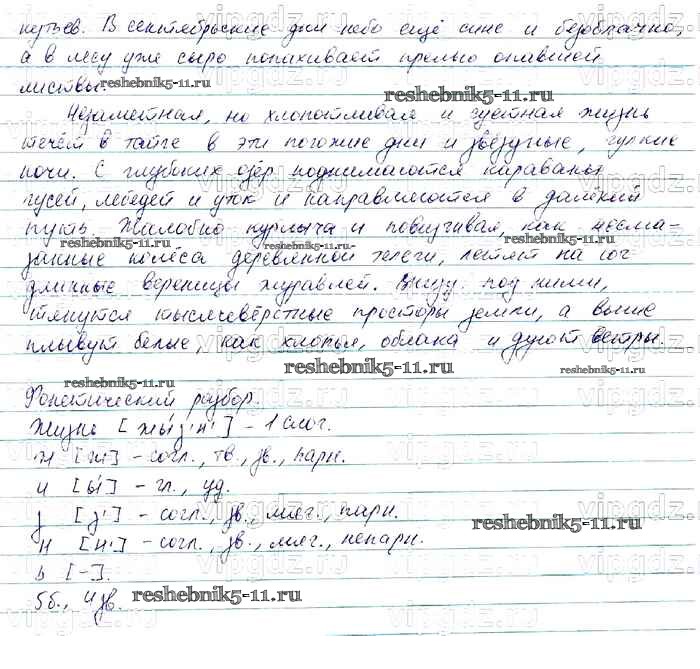 нутьев. В сентябрьские дни небо ещё сине и безоблачно,
а в лесу уже сыро попахивает прелью опавшей
листвы.
reshebnik5-11.ru
reshebnik5-11.ru
Незаметная, но хлопотливая и суетная жизнь
течёт в тайге в эти погожие дни и звёздные, гулкие
ночи. С глубоких озёр поднимаются караваны
гусей, лебедей и уток и направляются в далёкий
путь. Жалобно курлыча и повизгивая, как несма-
reshebnik5-11.ru
reshebnik5-11.ru
занные колёса деревянной телеги, летят на юг
длинные вереницы журавлей. Внизу, под ними,
тянутся тысячевёрстные просторы земли, а выше
плывут белые, как хлопья, облака и дуют ветры.
reshebnik5-11.ru
reshebnik5-11.ru
Фонетический разбор.
Жизнь [жы́з'н'] - 1 слог.
ж [ж] - согл., тв., зв., парн.
и [ы́] - гл., уд.
з [з'] - согл., зв., мягк., парн.
reshebnik5-11.ru
н [н'] - согл., зв., мягк., непарн.
ь [-].
5б., 4 зв.
reshebnik5-11.ru
vipgdz.ru